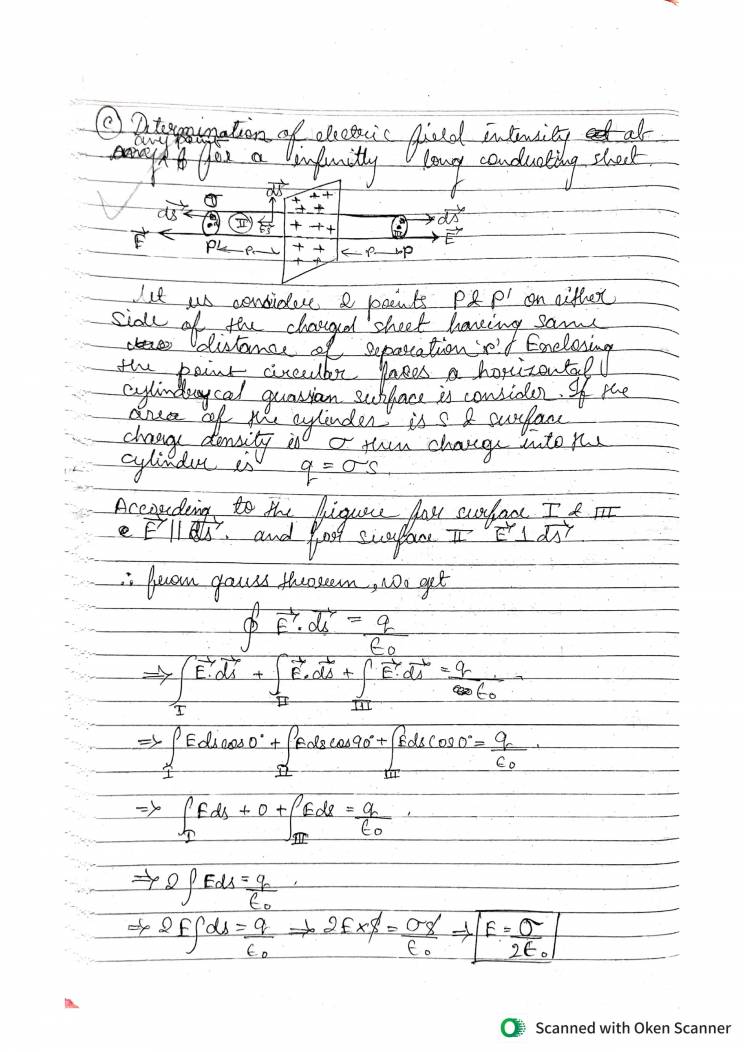 (c) Determination of electric field intensity at
any point for a infinitly long conducting sheet.
ds I II ds E + + + + + + + + + + + + + III ds
E P' r r P E
Let us considere 2 points P & P' on either
side of the charged sheet haveing same
distance of separation 'r'. Enclosing
the point circular faces a horizontal
cylinderycal guassian surface is consider. If the
area of the cylinder is S & surface
charge density is σ then charge into the
cylinder is q = σs
According to the figure for surface I & III
E || ds. and for surface II E ⊥ ds
∴ from gauss theorem, we get
∮ E⃗. ds⃗ = q/ϵ₀
⇒ ∫_I E⃗.ds⃗ + ∫_II E⃗.ds⃗ + ∫_III E⃗.ds⃗ = q/ϵ₀
⇒ ∫_I Eds cos0° + ∫_II Eds cos90° + ∫_III Eds cos0° = q/ϵ₀.
⇒ ∫_I Eds + 0 + ∫_III Eds = q/ϵ₀.
⇒ 2∫Eds = q/ϵ₀.
⇒ 2E∫ds = q/ϵ₀ ⇒ 2E×s = σs/ϵ₀ ⇒ E = σ/2ϵ₀
Scanned with Oken Scanner